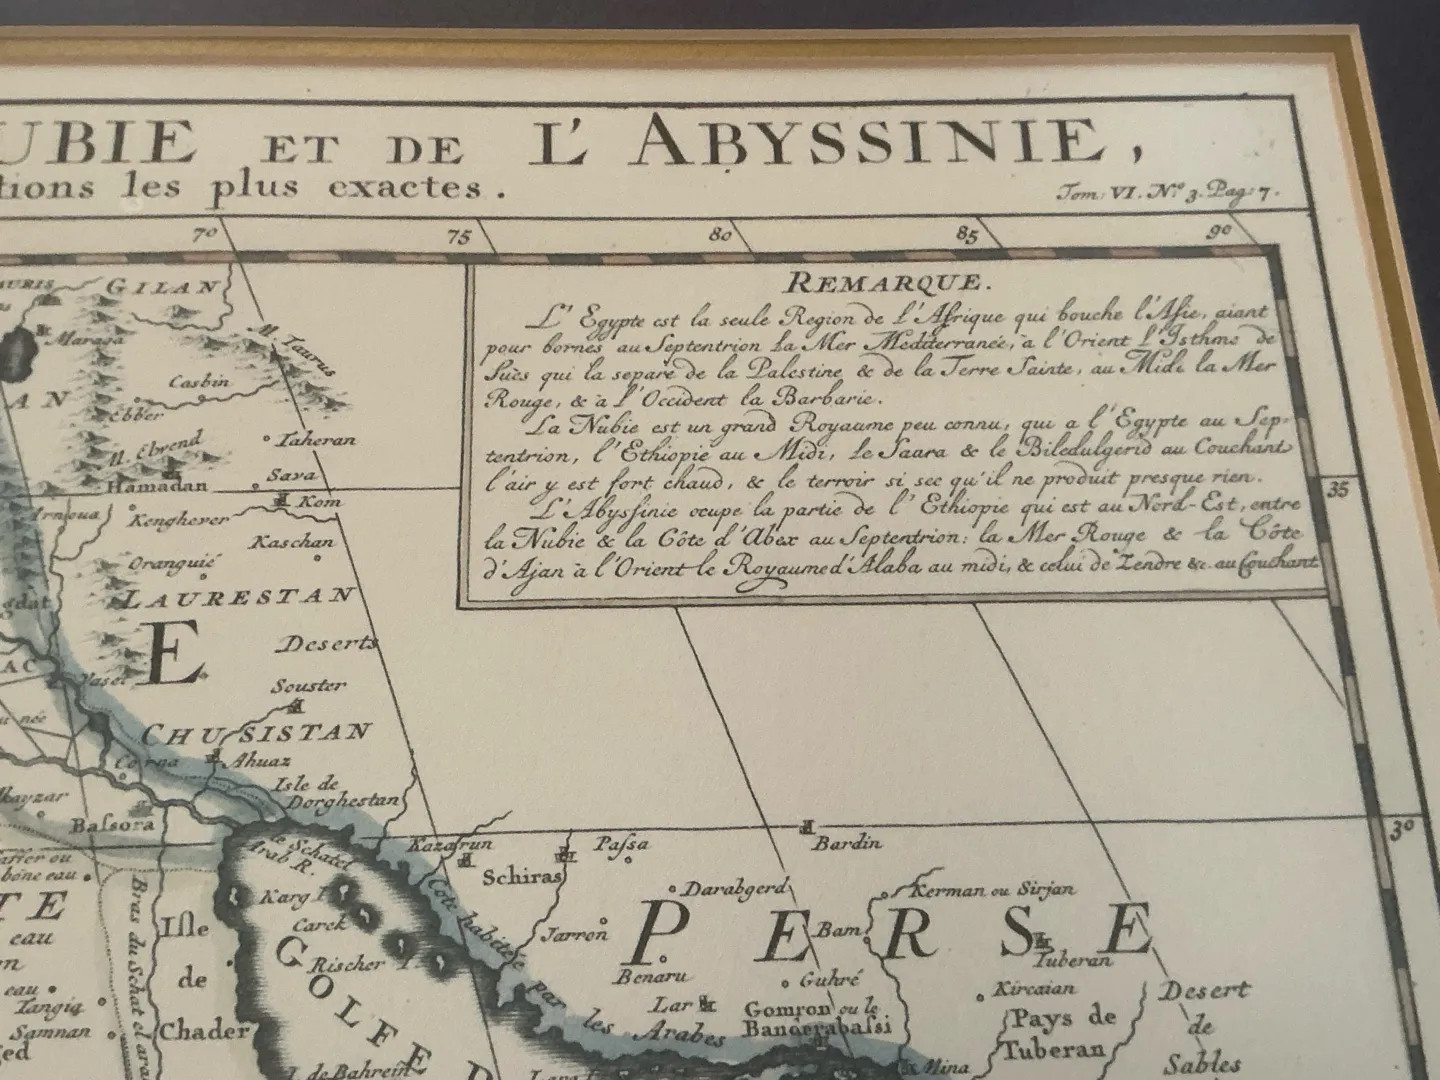 UBIE ET DE L'ABYSSINIE,
tions les plus exactes.
Tom. VI. N.º 3. Pag: 7.
70 75 80 85 90
REMARQUE.
L'Egypte est la seule Region de l'Afrique qui bouche l'Asie, aiant
pour bornes au Septentrion la Mer Mediterranée, a l'Orient l'Isthme de
Suès qui la separe de la Palestine & de la Terre Sainte, au Midi la Mer
Rouge, & à l'Occident la Barbarie.
La Nubie est un grand Royaume peu connu, qui a l'Egypte au Sep-
tentrion, l'Ethiopie au Midi, le Saara & le Biledulgerid au Couchant
l'air y est fort chaud, & le terroir si sec qu'il ne produit presque rien.
L'Abyssinie ocupe la partie de l'Ethiopie qui est au Nord-Est, entre
la Nubie & la Côte d'Abex au Septentrion: la Mer Rouge & la Côte
d'Ajan à l'Orient le Royaume d'Alaba au midi, & celui de Zendre &c. au Couchant
GILAN
M. Taurus
Maraga
Casbin
AN
Ebber
Taheran
M. Elvend
Sava
Hamadan
Kom
35
Kenghever
Kaschan
Oranguié
LAURESTAN
E
Deserts
Souster
CHUSISTAN
Corna
Ahuaz
Isle de
Dorghestan
Bassora
30
le Schatel
Arab R.
Kazerun
Schiras
Passa
Bardin
bone eau
Karg I
Carek
Côte habitée par les Arabes
Darabgerd
Kerman ou Sirjan
TE
Bras du Schat el ara
Isle
de
Chader
Jarron
PERSE
Bam
eau
Rischer
Benaru
Guhré
Tuberan
eau
Tangiq
Samnan
GOLFE D
Lar
Gomron ou le
Banderabassi
Kircaian
Pays de
Tuberan
Desert
de
Sables
I. de Bahrein
Mina